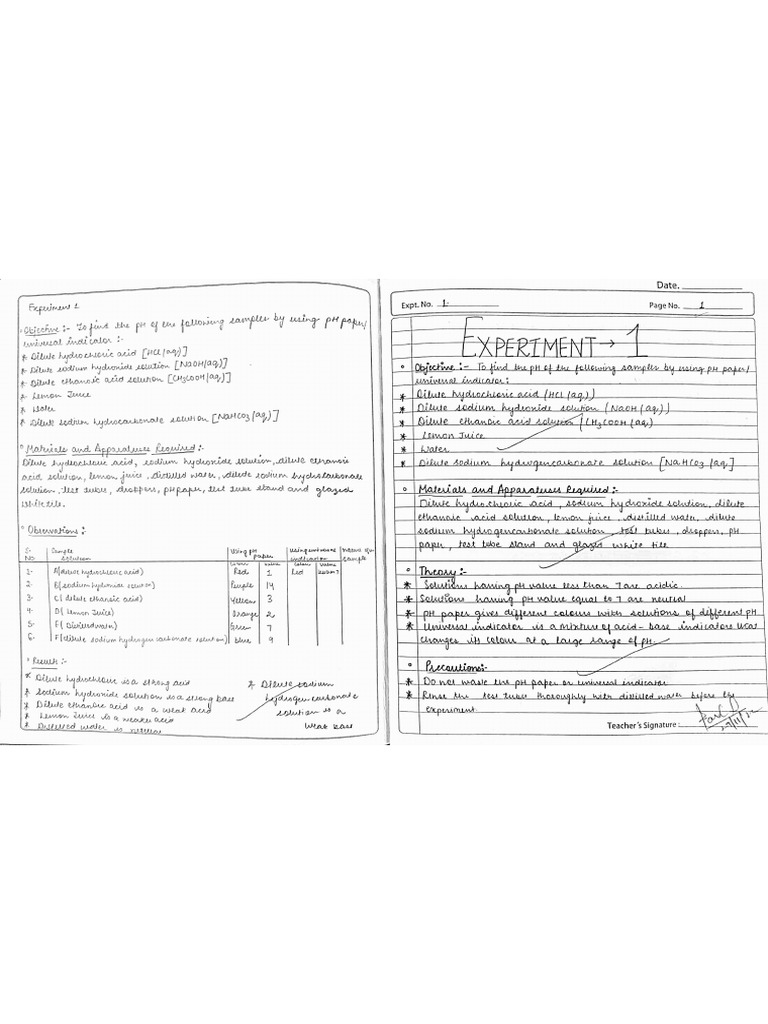 Experiment 1
° Objective :- To find the pH of the following samples by using pH paper/
universal indicator :-
* Dilute hydrochloric acid [HCl (aq)]
* Dilute sodium hydroxide solution [NaOH (aq)]
* Dilute ethanoic acid solution [CH3COOH (aq)]
* Lemon Juice
* Water
* Dilute sodium hydrocarbonate solution [NaHCO3 (aq)]
° Materials and Apparatuses Required :-
Dilute hydrochloric acid, sodium hydroxide solution, dilute ethanoic
acid solution, lemon juice, distilled water, dilute sodium
solution, test tubes, droppers, pH paper, test tube stand and glazed
white tile.
° Observations :-
S. No Sample solution Using pH paper Using universal indicator
Colour Value Colour Value
1- A(dilute hydrochloric acid) Red 1 Red
2- B(sodium hydroxide solution) Purple 14
3- C(dilute ethanoic acid) Yellow 3
4- D(lemon Juice) Orange 2
5- Green 7
6- F(dilute sodium hydrogen carbonate solution) blue 9
° Results :-
* Dilute hydrochloric is a strong acid
* Sodium hydroxide solution is a strong base
* Dilute ethanoic acid is a weak acid
* Lemon Juice is a weaker acid
* Distilled water is neutral
* Dilute sodium
hydrogen carbonate
solution is a
weak base
Date.
Expt. No. 1.
Page No. 1
EXPERIMENT → 1
° Objective :- To find the pH of the following samples by using pH paper/
universal indicator:
* Dilute hydrochloric acid (HCl (aq.)
* Dilute sodium hydroxide solution (NaOH (aq.)
* Dilute ethanoic acid solution (CH3COOH (aq)
* Lemon Juice
* Water
* Dilute sodium hydrogencarbonate solution [NaHCO3 (aq.]
° Materials and Apparatuses Required :-
Dilute hydrochloric acid, sodium hydroxide solution, dilute
ethanoic acid solution, lemon juice, distilled water, dilute
sodium hydrogencarbonate solution, test tubes, droppers, pH
paper, test tube stand and glazed white tile.
° Theory :-
* Solutions having pH value less than 7 are acidic.
* Solutions having pH value equal to 7 are neutral
* pH paper gives different colours with solutions of different pH
* Universal indicator is a mixture of acid-base indicators that
changes its colour at a large range of pH.
° Precautions:-
* Do not waste the pH paper or universal indicator
* Rinse the test tubes thoroughly with distilled water before the
experiment.
Teacher's Signature :